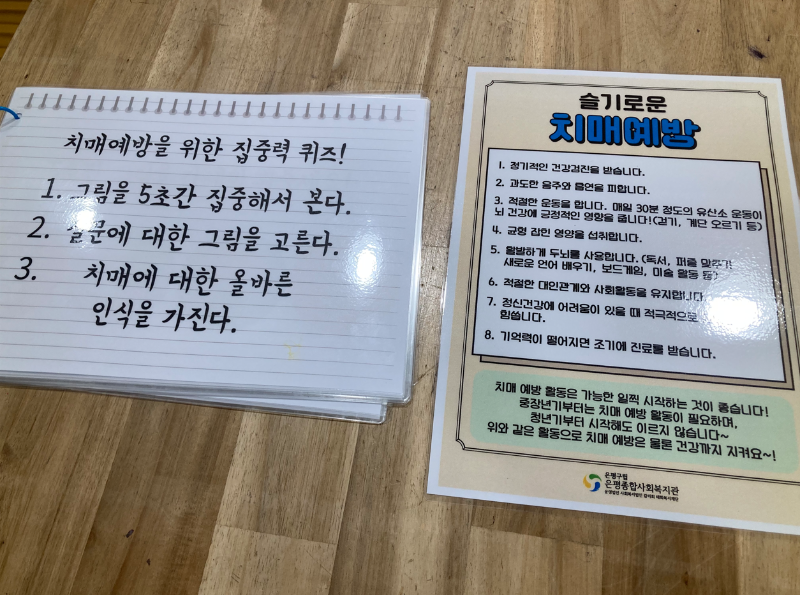 치매예방을 위한 집중력 퀴즈!
1. 그림을 5초간 집중해서 본다.
2. 질문에 대한 그림을 고른다.
3. 치매에 대한 올바른
인식을 가진다.
슬기로운
치매예방
1. 정기적인 건강검진을 받습니다.
2. 과도한 음주와 흡연을 피합니다.
3. 적절한 운동을 합니다. 매일 30분 정도의 유산소 운동이
뇌 건강에 긍정적인 영향을 줍니다!(걷기, 계단 오르기 등)
4. 균형 잡힌 영양을 섭취합니다.
5. 활발하게 두뇌를 사용합니다. (독서, 퍼즐 맞추기
새로운 언어 배우기, 보드게임, 미술 활동 등)
6. 적절한 대인관계와 사회활동을 유지합니다.
7. 정신건강에 어려움이 있을 때 적극적으로
힘씁니다.
8. 기억력이 떨어지면 조기에 진료를 받습니다.
치매 예방 활동은 가능한 일찍 시작하는 것이 좋습니다!
중장년기부터는 치매 예방 활동이 필요하며,
청년기부터 시작해도 이르지 않습니다~
위와 같은 활동으로 치매 예방은 물론 건강까지 지켜요~!
은평구립
은평종합사회복지관